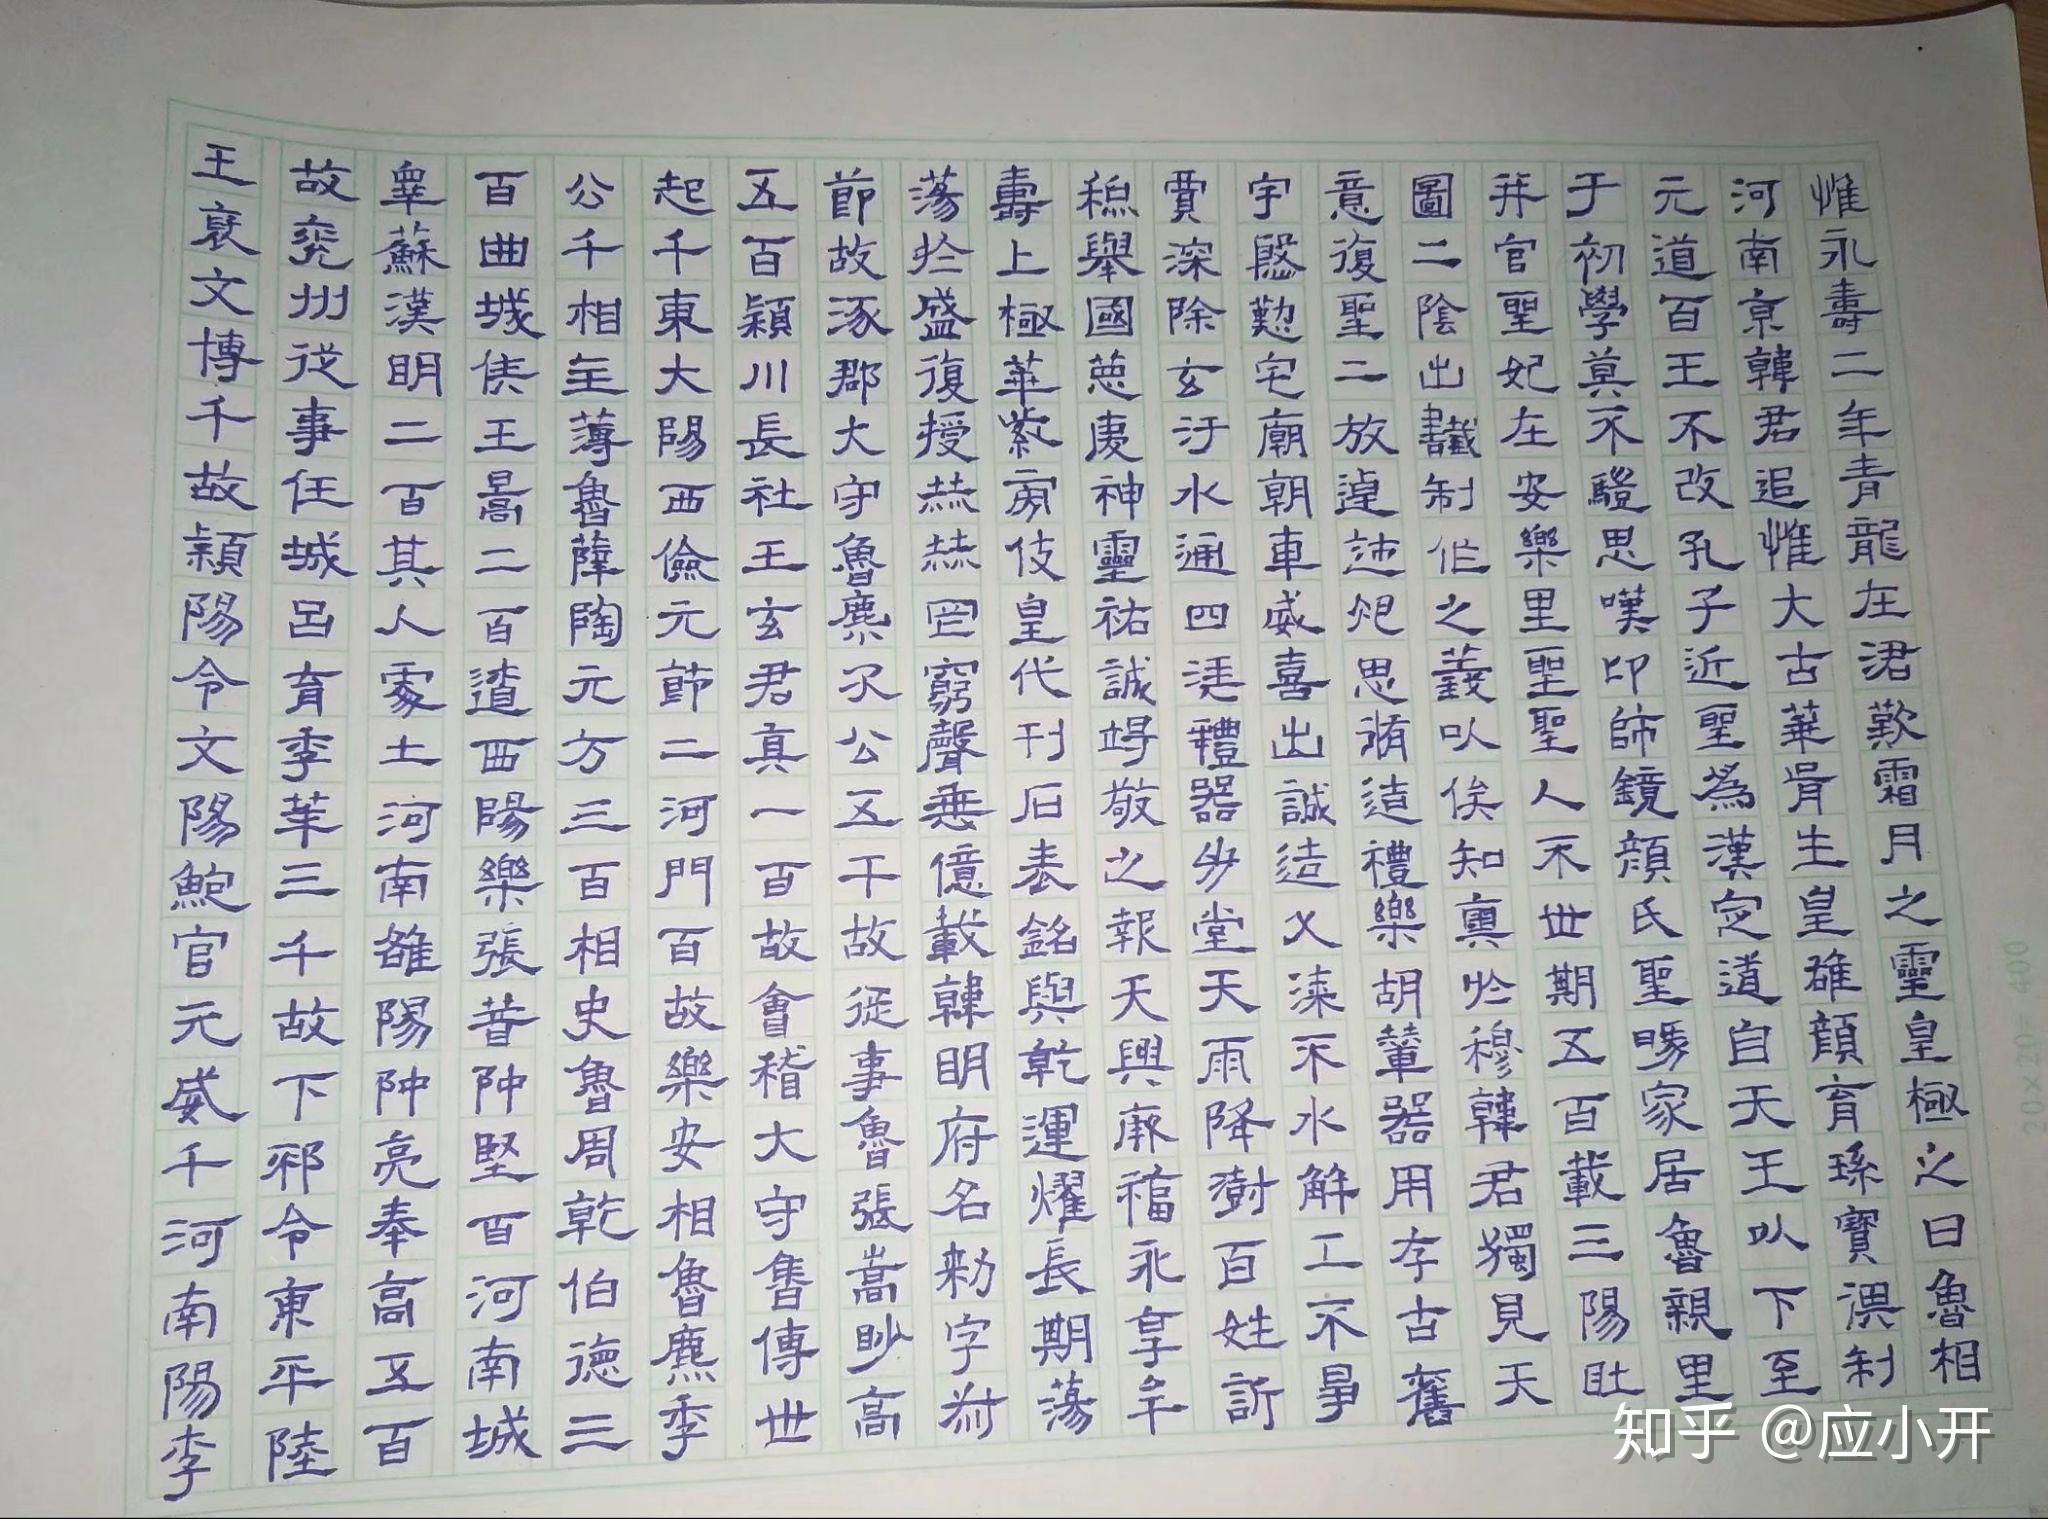 惟永壽二年青龍在涒歎霜月之靈皇極之日魯相
河南京韓君追惟大古華胥生皇雄顏育孫寶俱制
元道百王不改孔子近聖為漢定道自天王以下至
于初學莫不驥思嘆卬師鏡顏氏聖舅家居魯親里
并官聖妃在安樂里聖聖人不世期五百載三陽吐
圖二陰出讖制作之義以俟知奧於穆韓君獨見天
意復聖二族逴越絕思脩造禮樂胡輦器用存古舊
宇慇懃宅廟朝車威喜出誠造又漆不水解工不爭
賈深除玄汙水通四注禮器升堂天雨降澍百姓訢
和舉國蒙慶神靈祐誠竭敬之報天與厥福永享牟
壽上極華紫旁伎皇代刊石表銘與乾運耀長期蕩
蕩於盛復授赫赫罔窮聲垂億載韓明府名勑字叔
節故涿郡大守魯麃次公五千故從事魯張嵩眇高
五百潁川長社王玄君真一百故會稽大守魯傅世
起千東大陽西儉元節二河門百故樂安相魯麃季
公千相主薄魯薛陶元方三百相史魯周乾伯德三
百曲城侯王暠二百遼西陽樂張普仲堅百河南城
皋蘇漢明二百其人處士河南雒陽种亮奉高五百
故兗州從事任城呂育季華三千故下邳令東平陸
王褒文博千故潁陽令文陽鮑宮元威千河南陽李
20×20=400
知乎 @应小开